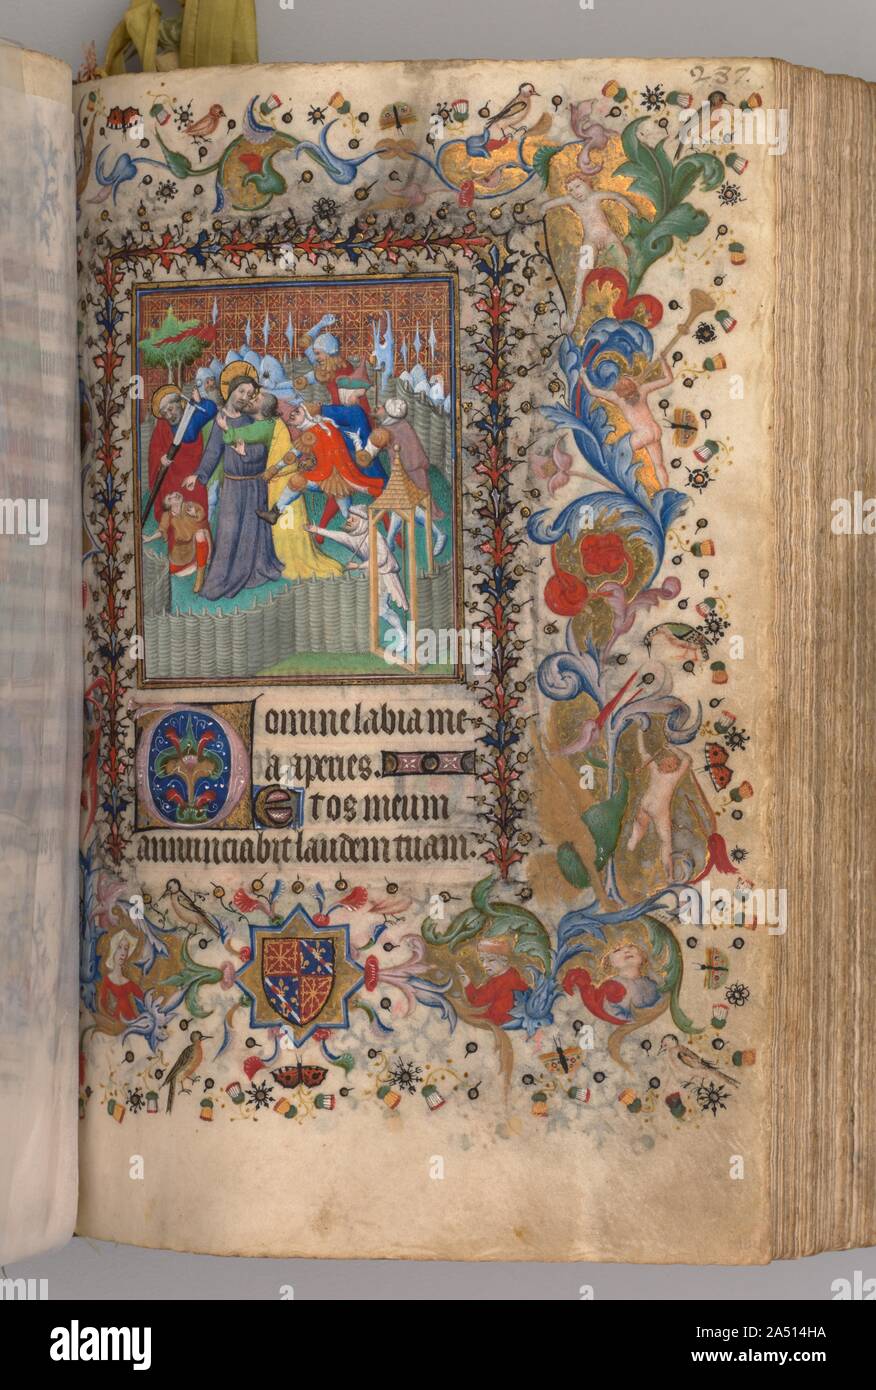 237.
Domine labia me
a aperies.
Et os meum
annunciabit laudem tuam.
a
alamy
Image ID: 2A514HA
www.alamy.com